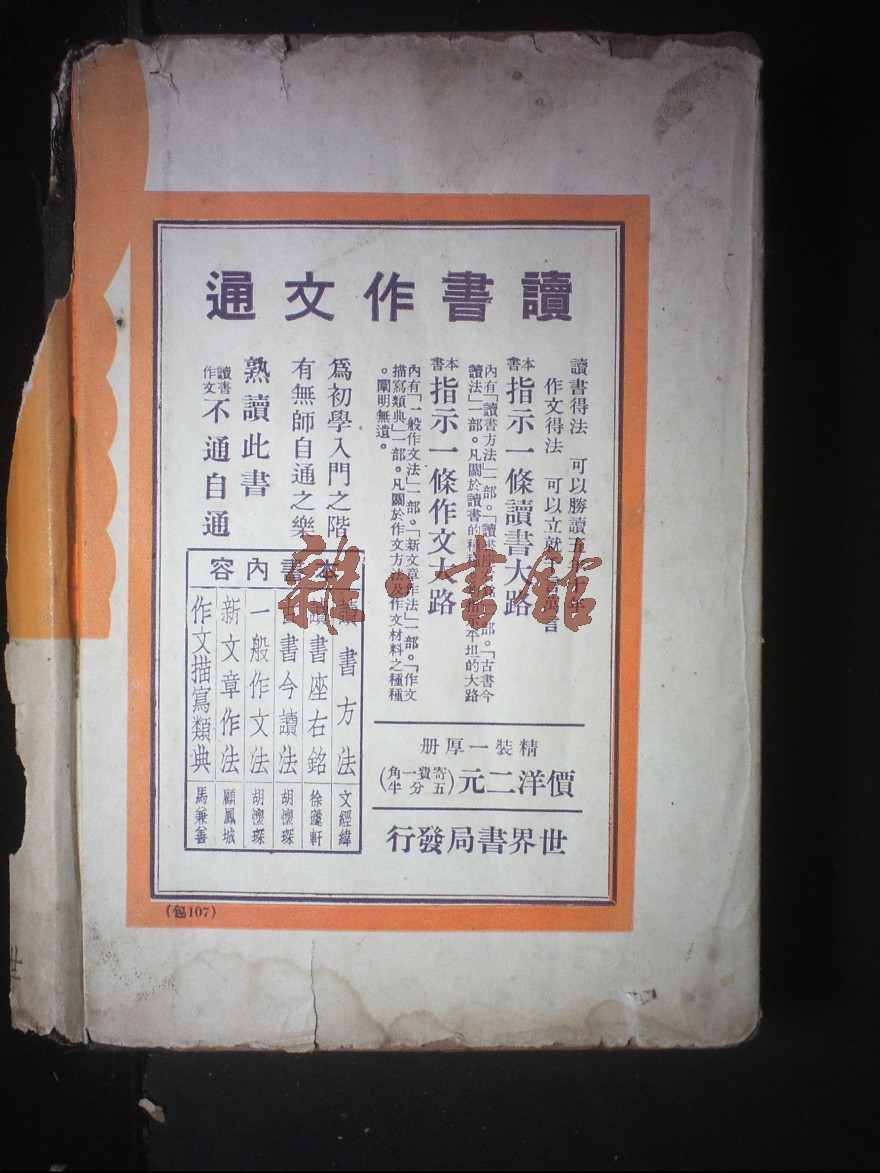 讀書作文通
讀書得法 可以勝讀五
作文得法 可以立就
本書指示一條讀書大路
內有「讀書方法」一部。「讀
部。「古書今
讀法」一部。凡關於讀書的種
平坦的大路
本書指示一條作文大路
內有「一般作文法」一部。「新文章作法」一部。「作文
描寫類典」一部。凡關於作文方法及作文材料之種種
。闡明無遺。
爲初學入門之階
有無師自通之樂
熟讀此書
讀書作文不通自通
本書內容
讀書方法 文經緯
讀書座右銘 徐蘧軒
古書今讀法 胡懷琛
一般作文法 胡懷琛
新文章作法 顧鳳城
作文描寫類典 馬兼善
精裝一厚册
價洋二元(寄費一角五分半)
世界書局發行
(包107)
雜·書館
世